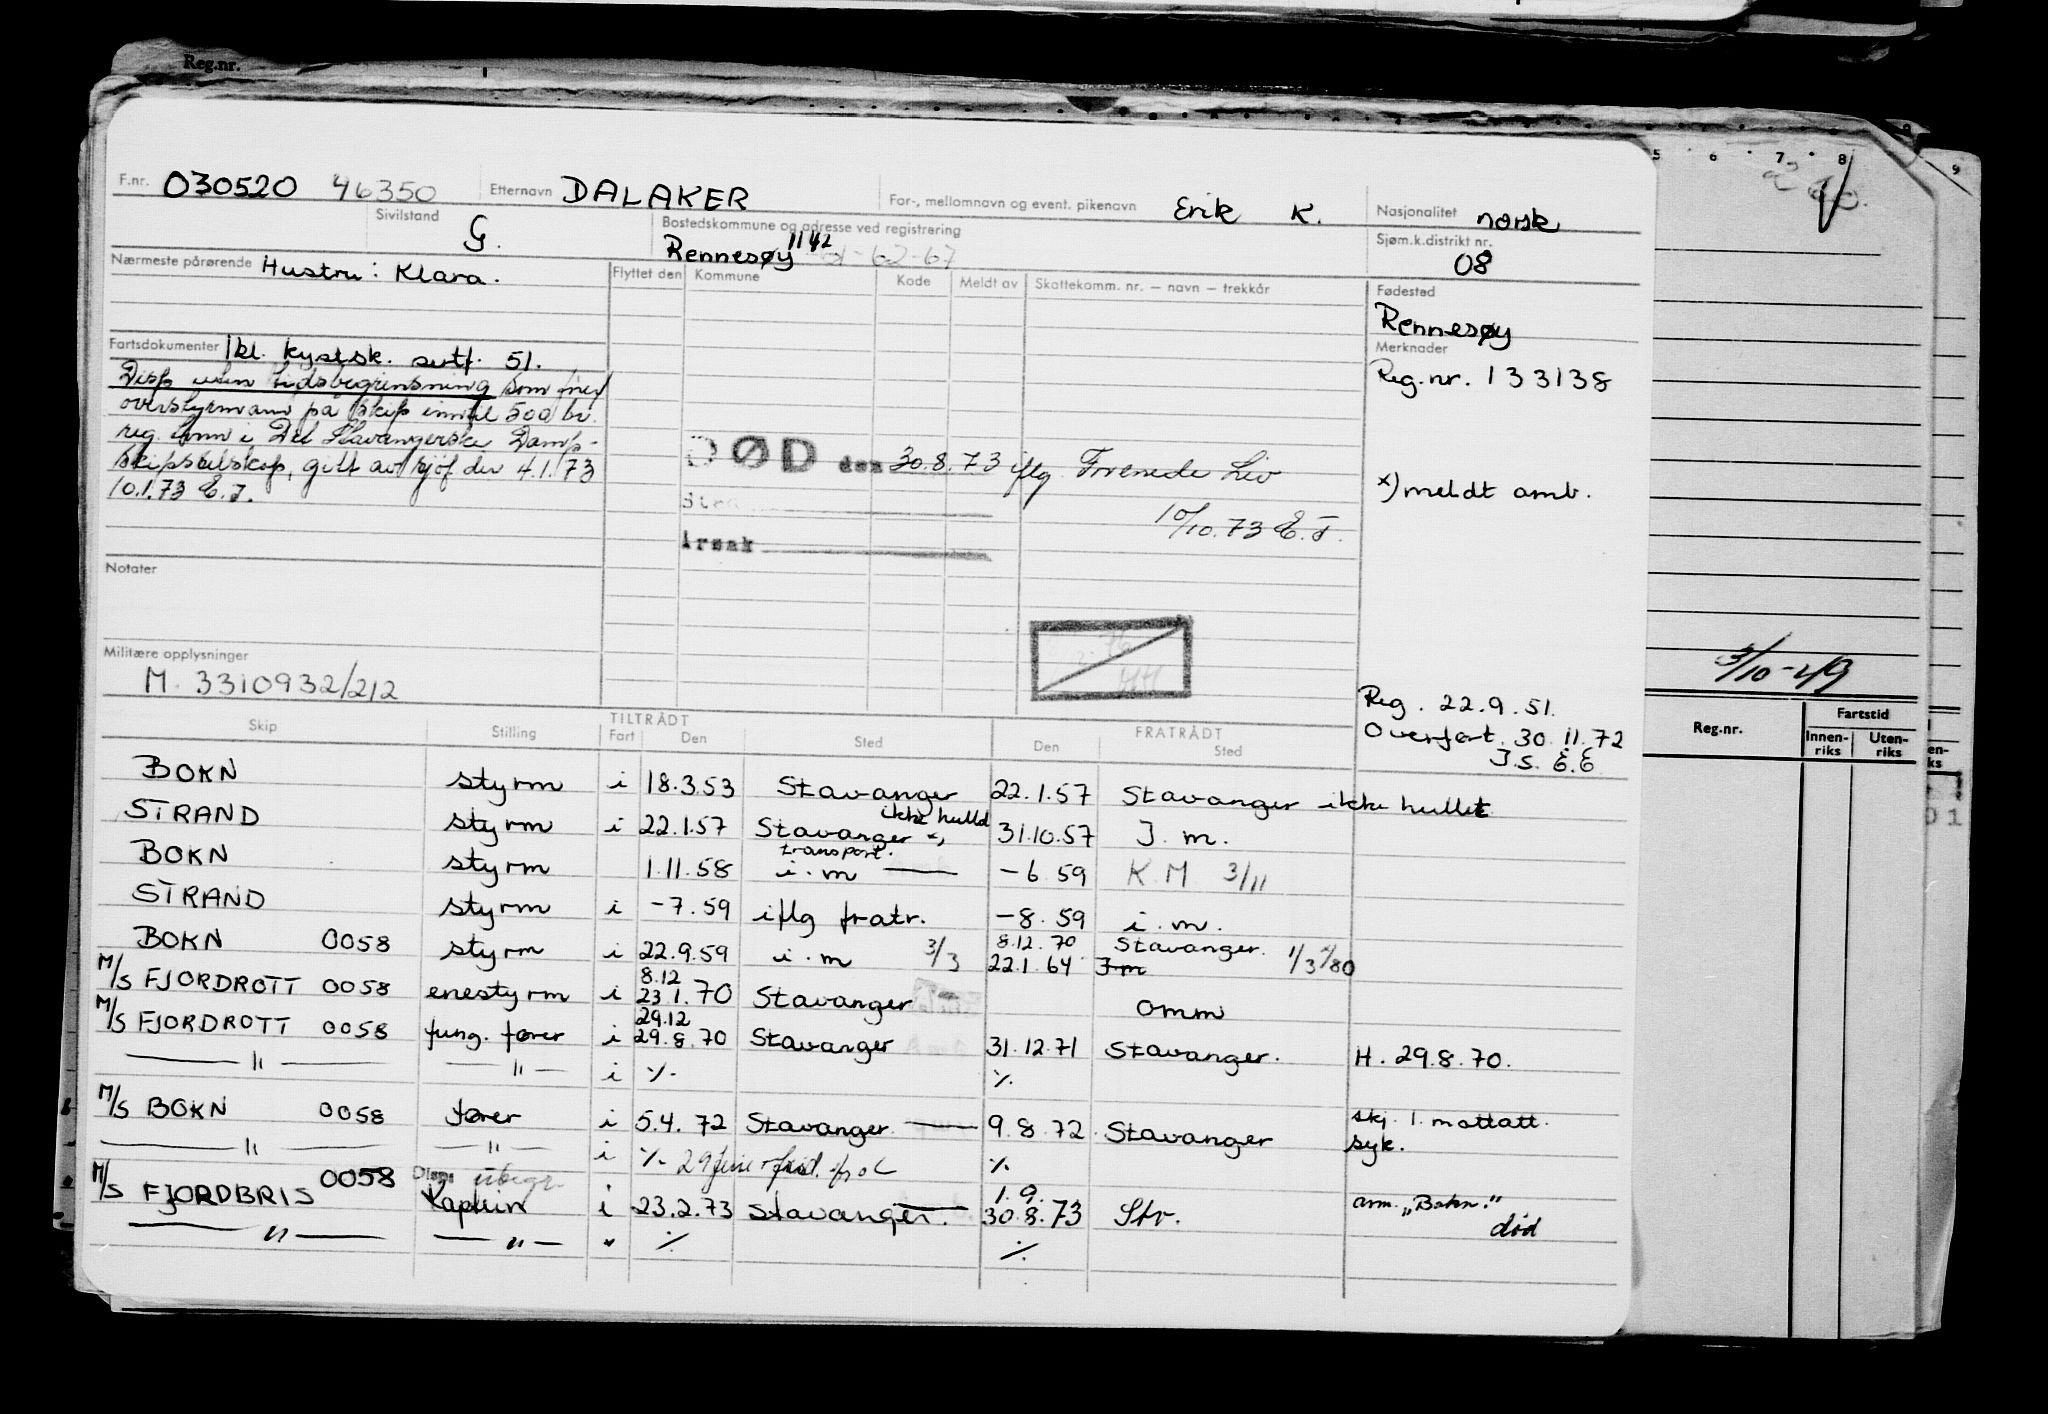 Reg.nr.
F.nr. 030520 46350 Etternavn DALAKER For-, mellomnavn og event. pikenavn Erik K. Nasjonalitet norsk
Sivilstand G. Bostedskommune og adresse ved registrering Rennesøy 1142 Sjøm.k.distrikt nr. 08
Nærmeste pårørende Hustru: Klara.
Flyttet den Kommune Kode Meldt av Skattekomm. nr. — navn — trekkår
Fødested
Rennesøy
Fartsdokumenter 1kl. kystsk. sertf. 51.
Merknader
Reg.nr. 133138
Disp uten tidsbegrensning som
overstyrmann på skip inntil 500 br.
reg. tonn i Det Stavangerske Damp-
skipsselskap, gitt av sjøf. den 4.1.73
10.1.73 E.J.
DØD den 30.8.73 iflg
10/10.73 E.J.
Årsak
x) meldt amb.
Notater
Militære opplysninger
M. 3310932/212
Reg. 22.9.51.
Overført. 30.11.72
J.S. E.E
Skip Stilling TILTRÅDT Fart Den Sted FRATRÅDT Den Sted
BOKN styrm i 18.3.53 Stavanger 22.1.57 Stavanger ikke hullet
STRAND styrm i 22.1.57 Stavanger ikke hulld 31.10.57 J. m.
BOKN styrm 1.11.58 transport. i. m — -6.59 K.M 3/11
STRAND styrm i -7.59 iflg fratr. -8.59 i. m.
BOKN 0058 styrm i 22.9.59 i. m 3/3 8.12.70 22.1.64 Stavanger. Jm
M/S FJORDROTT 0058 enestyrm i 8.12 23.1.70 Stavanger omm
M/S FJORDROTT 0058 fung. fører i 29.12 29.8.70 Stavanger 31.12.71 Stavanger. H. 29.8.70.
— " — — " — i ·/· ·/·
M/S BOKN 0058 fører i 5.4.72 Stavanger. — 9.8.72 Stavanger skj. 1. mottatt. syk.
— " — — " — i ·/· ·/·
M/S FJORDBRIS 0058 Disp: ubegr. Kaptein i 23.2.73 Stavanger. 1.9. 30.8.73 Str. anm. „Bokn." død
— " — — " — " ·/· ·/·
5 6 7 8 9
3/10-49
Reg.nr. Fartstid
Innen-riks Uten-riks